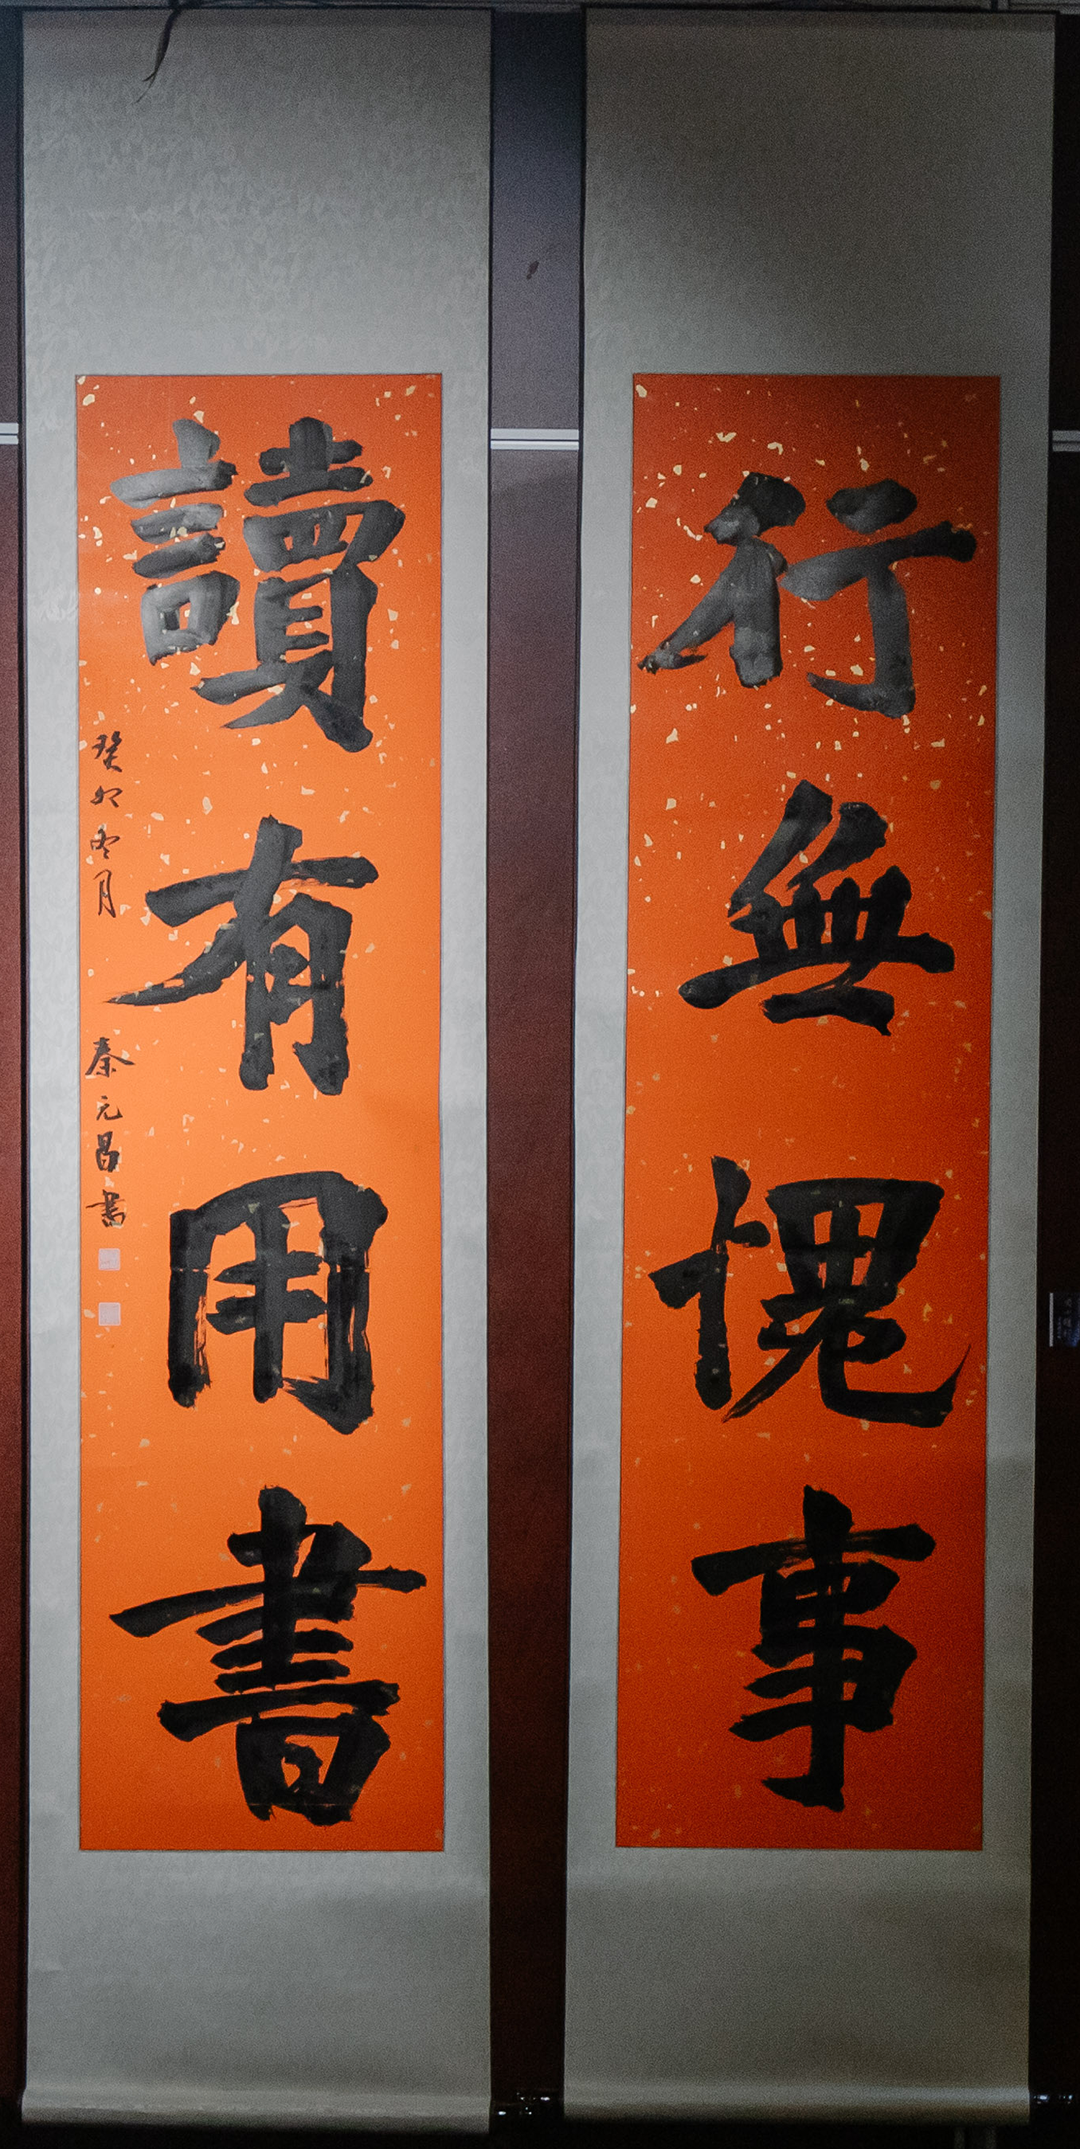 行無愧事
讀有用書
癸卯冬月
秦元昌書